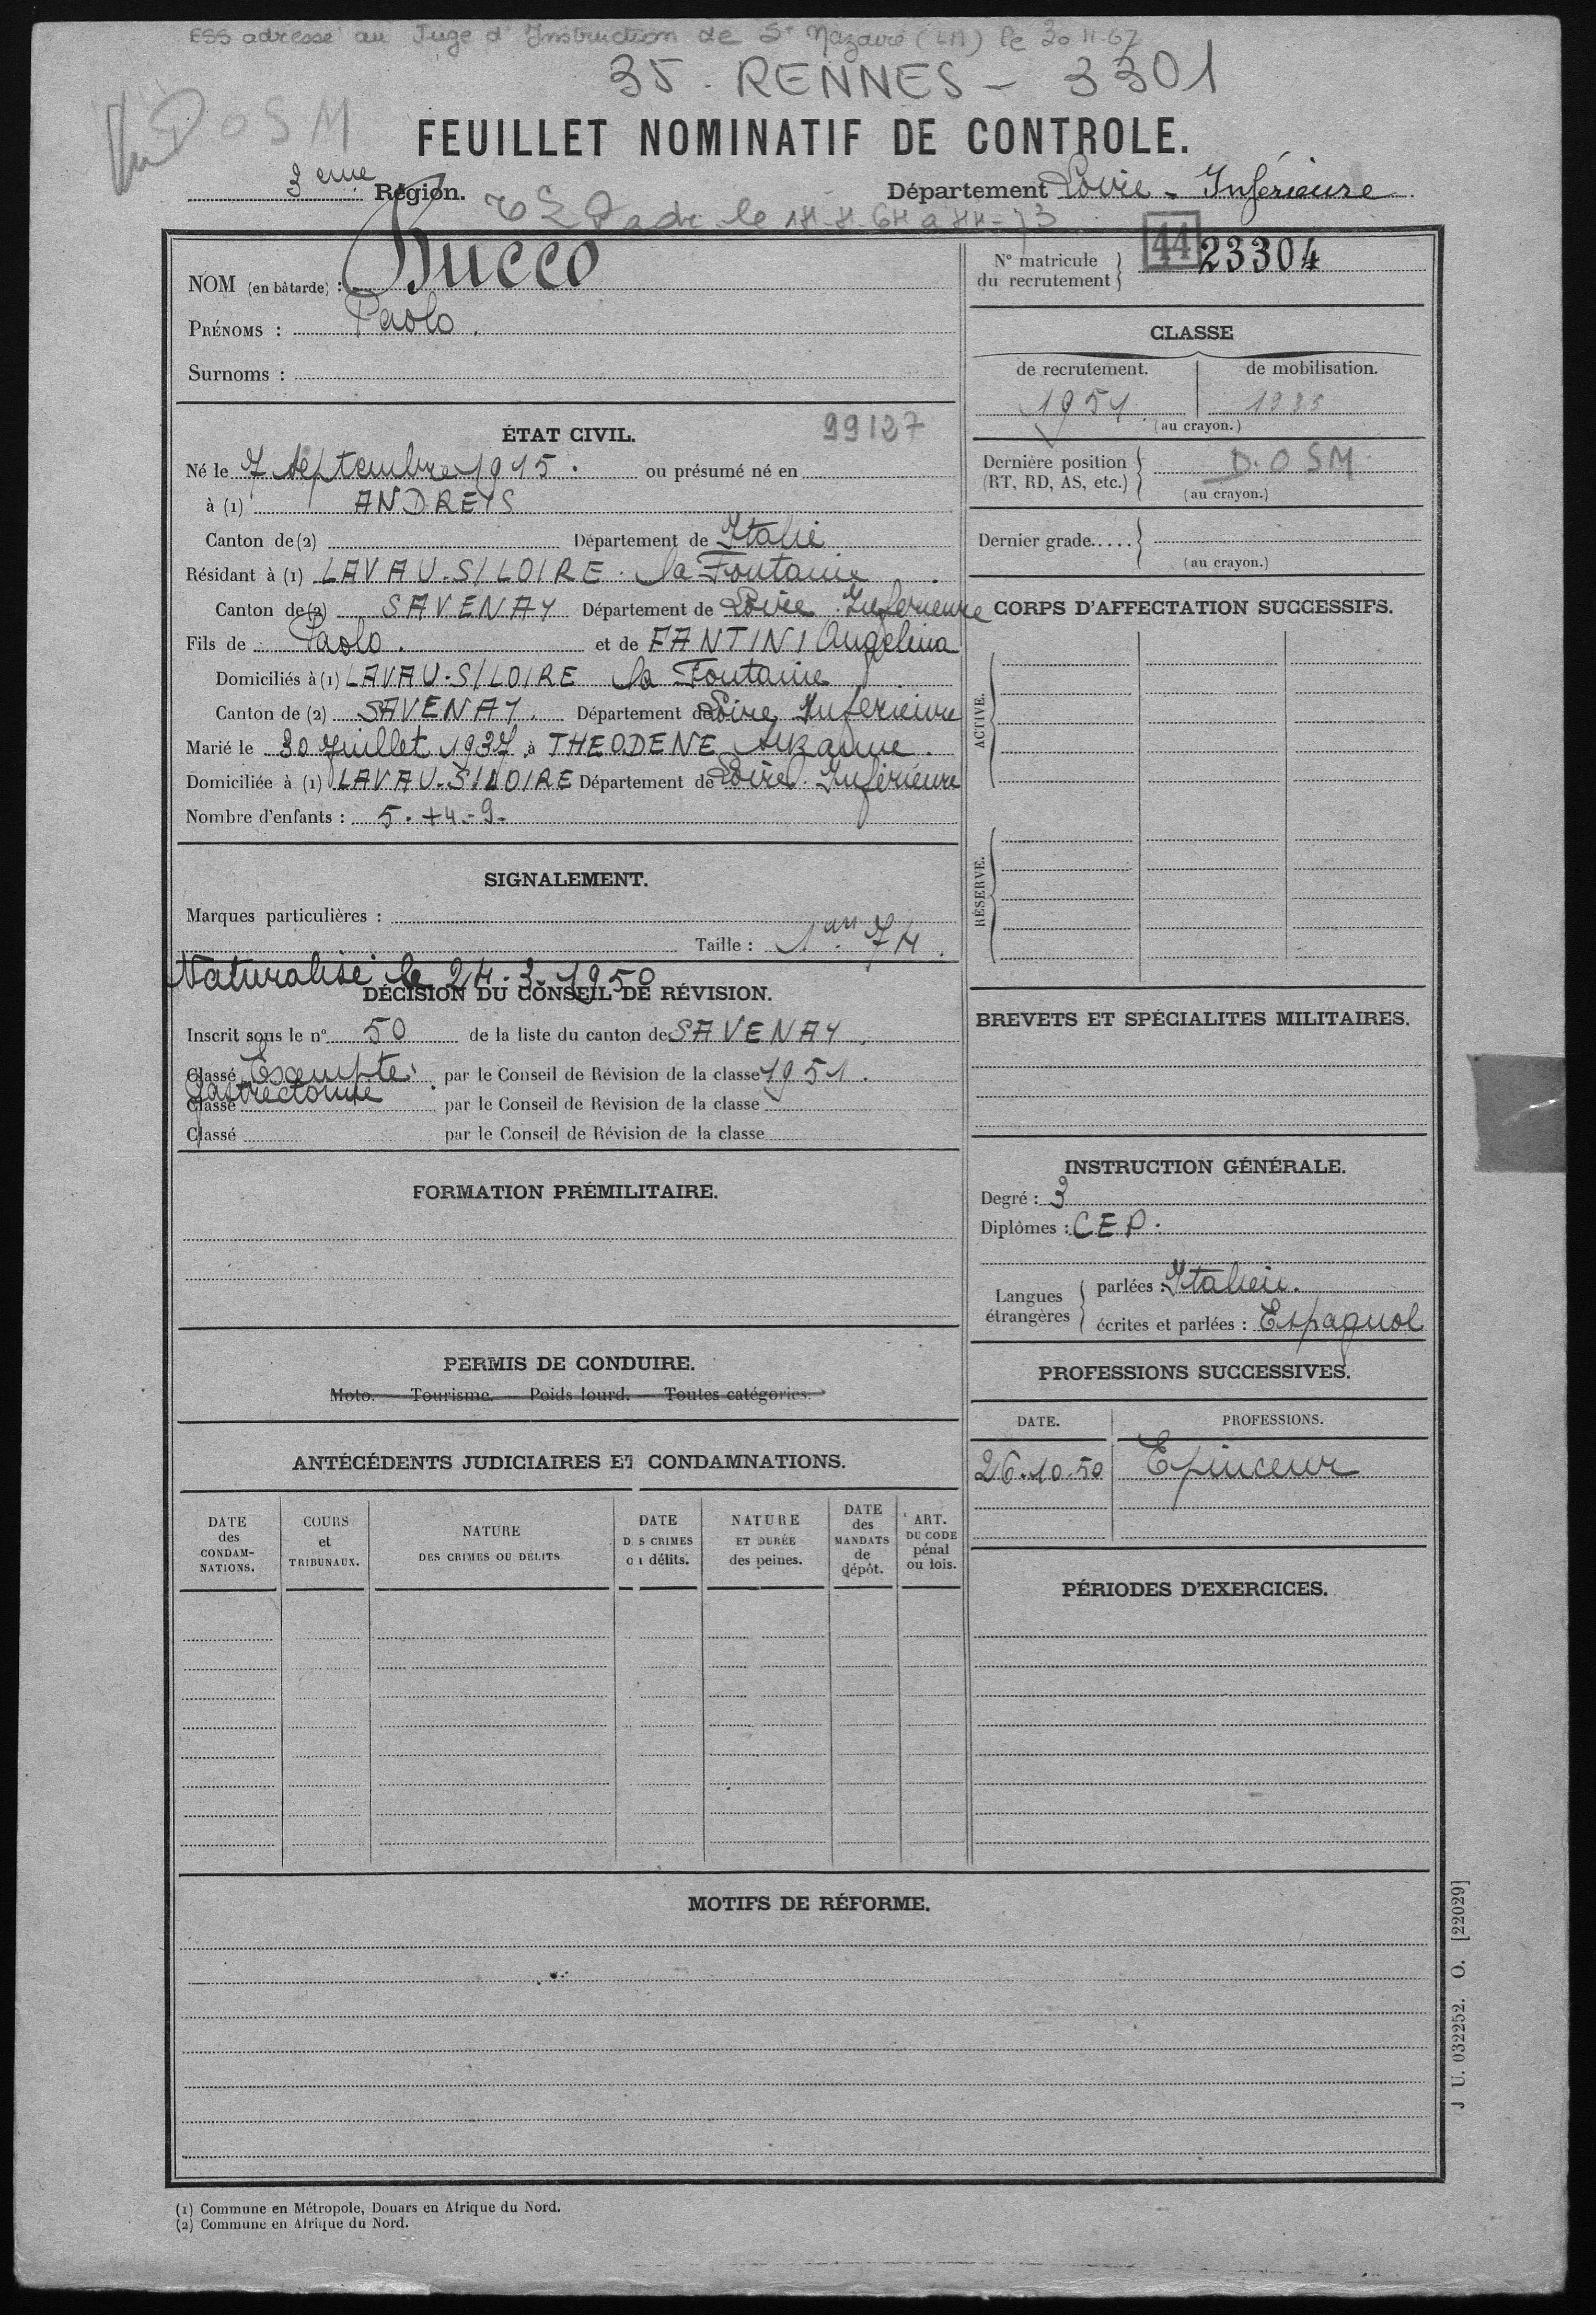 ESS adressé au Juge d'Instruction de St Nazaire (LA) le 30 11 67
35 - RENNES - 3301
Vu D O S M
FEUILLET NOMINATIF DE CONTROLE.
3eme Région.
Département Loire - Inférieure
adr. le
NOM (en bâtarde) : Bucco
PRÉNOMS : Paolo.
Surnoms :
ÉTAT CIVIL.
99127
Né le 7 Septembre 1915. ou présumé né en
à (1) ANDREYS
Canton de (2) Département de Italie
Résidant à (1) LAVAU-S/LOIRE. la Fontaine
Canton de (2) SAVENAY Département de Loire Inferieure
Fils de Paolo. et de FANTINI Angelina
Domiciliés à (1) LAVAU-S/LOIRE la Fontaine
Canton de (2) SAVENAY. Département de Loire Inferieure
Marié le 30 Juillet 1937 à THEODENE Suzanne.
Domiciliée à (1) LAVAU-S/LOIRE Département de Loire Inférieure
Nombre d'enfants : 5. +4.- 9-
SIGNALEMENT.
Marques particulières :
Taille : 1m 74.
Naturalisé le 24.3.1950
DÉCISION DU CONSEIL DE RÉVISION.
Inscrit sous le n° 50 de la liste du canton de SAVENAY.
Classé Exempté. par le Conseil de Révision de la classe 1951.
Gastrectomie
Classé par le Conseil de Révision de la classe
Classé par le Conseil de Révision de la classe
FORMATION PRÉMILITAIRE.
PERMIS DE CONDUIRE.
Moto. — Tourisme. — Poids lourd. — Toutes catégories.
ANTÉCÉDENTS JUDICIAIRES ET CONDAMNATIONS.
DATE des CONDAM-NATIONS.
COURS et TRIBUNAUX.
NATURE DES CRIMES OU DÉLITS
DATE D S CRIMES ou délits.
NATURE ET DURÉE des peines.
DATE des MANDATS de dépôt.
ART. DU CODE pénal ou lois.
N° matricule du recrutement } 44 23304
CLASSE
de recrutement. de mobilisation.
1951 1935
(au crayon.)
Dernière position (RT, RD, AS, etc.) } D. O SM
(au crayon.)
Dernier grade..... }
(au crayon.)
CORPS D'AFFECTATION SUCCESSIFS.
ACTIVE.
RÉSERVE.
BREVETS ET SPÉCIALITES MILITAIRES.
INSTRUCTION GÉNÉRALE.
Degré : 3
Diplômes : CEP.
Langues étrangères { parlées : Italien.
écrites et parlées : Espagnol
PROFESSIONS SUCCESSIVES.
DATE. PROFESSIONS.
26.10.50 Epinceur
PÉRIODES D'EXERCICES.
MOTIFS DE RÉFORME.
J U. 032252. O. [22029]
(1) Commune en Métropole, Douars en Afrique du Nord.
(2) Commune en Afrique du Nord.